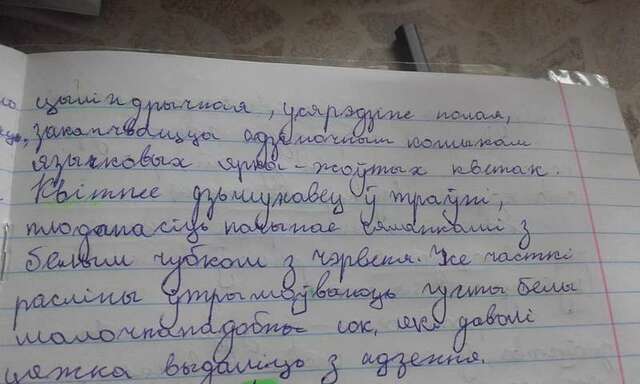 цыліндрычная, усярэдзіне полая,
заканчваецца адзіночным кошыкам
язычковых ярка-жоўтых кветак.
Квітнее дзьмухавец ў траўні,
пладанасіць пачынае сямянкамі з
белым чубком з чэрвеня. Усе часткі
расліны ўтрымоўваюць густы белы
малочнападобны сок, які даволі
цяжка выдаліць з адзення.